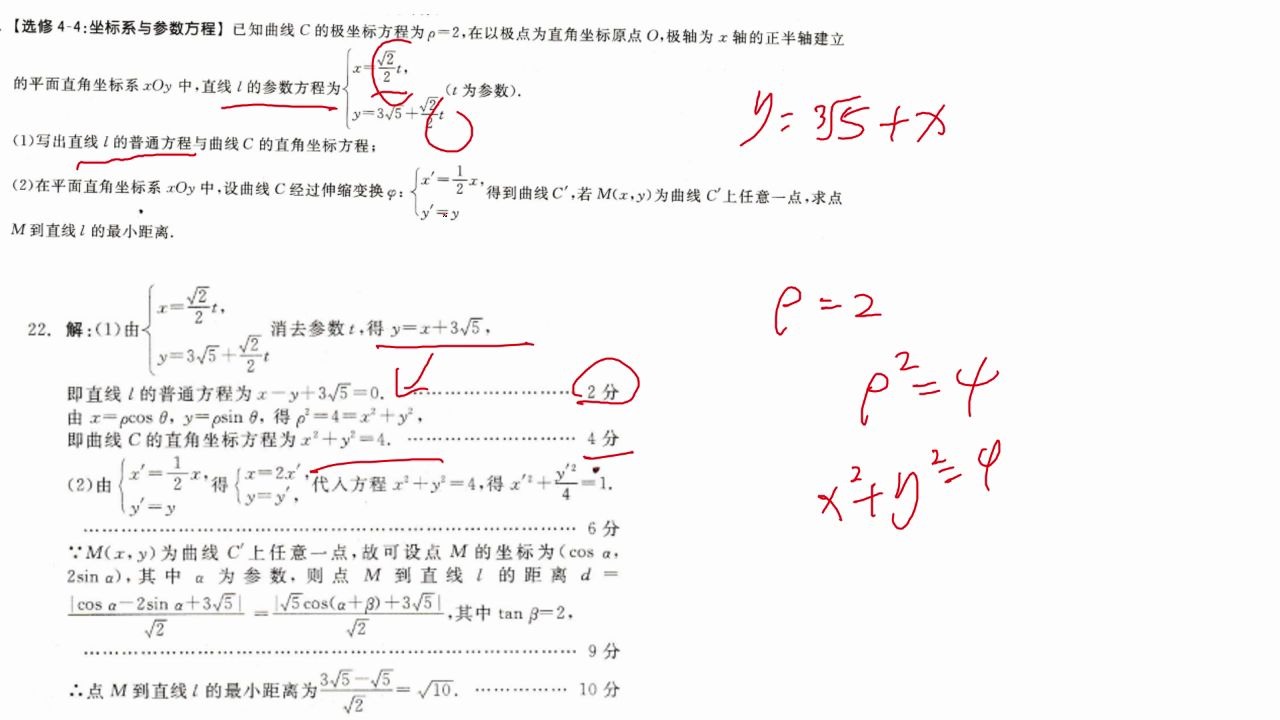 【选修4-4:坐标系与参数方程】已知曲线C的极坐标方程为ρ=2,在以极点为直角坐标原点O,极轴为x轴的正半轴建立
的平面直角坐标系xOy中,直线l的参数方程为{x=√2/2 t, y=3√5+√2/2 t (t为参数).
(1)写出直线l的普通方程与曲线C的直角坐标方程;
(2)在平面直角坐标系xOy中,设曲线C经过伸缩变换φ:{x′=1/2 x, y′=y 得到曲线C′,若M(x,y)为曲线C′上任意一点,求点
M到直线l的最小距离.
y=3√5+x
ρ=2
ρ²=4
x²+y²=4
22. 解:(1)由{x=√2/2 t, y=3√5+√2/2 t 消去参数t,得y=x+3√5,
即直线l的普通方程为x-y+3√5=0. ………………………… 2分
由x=ρcos θ, y=ρsin θ, 得ρ²=4=x²+y²,
即曲线C的直角坐标方程为x²+y²=4. ………………………… 4分
(2)由{x′=1/2 x, y′=y 得{x=2x′, y=y′, 代入方程x²+y²=4,得x′²+y′²/4=1.
………………………………………………………………… 6分
∵M(x,y)为曲线C′上任意一点,故可设点M的坐标为(cos α,
2sin α),其中α为参数,则点M到直线l的距离d=
|cos α-2sin α+3√5|/√2=|√5cos(α+β)+3√5|/√2,其中tan β=2,
………………………………………………………………… 9分
∴点M到直线l的最小距离为(3√5-√5)/√2=√10. …………… 10分